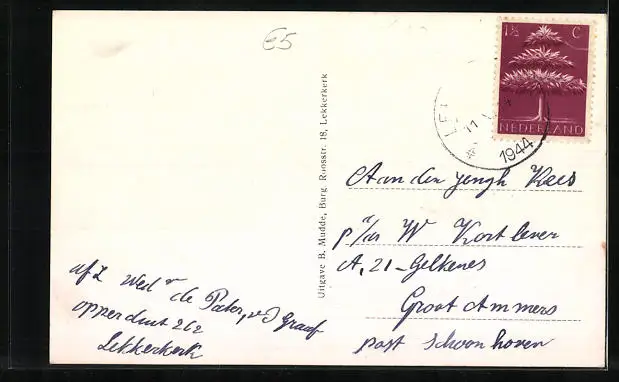 €5
1½ C
NEDERLAND
LE
11
1944
Uitgave B. Mudde, Burg. Roosstr. 18, Lekkerkerk
Aan den jongh Kees
p/a W Kortlever
A, 21 - Gelkenes
Groot Ammers
post Schoonhoven
afz Wed
de Pater, v d Graaf
opperduit 262
Lekkerkerk